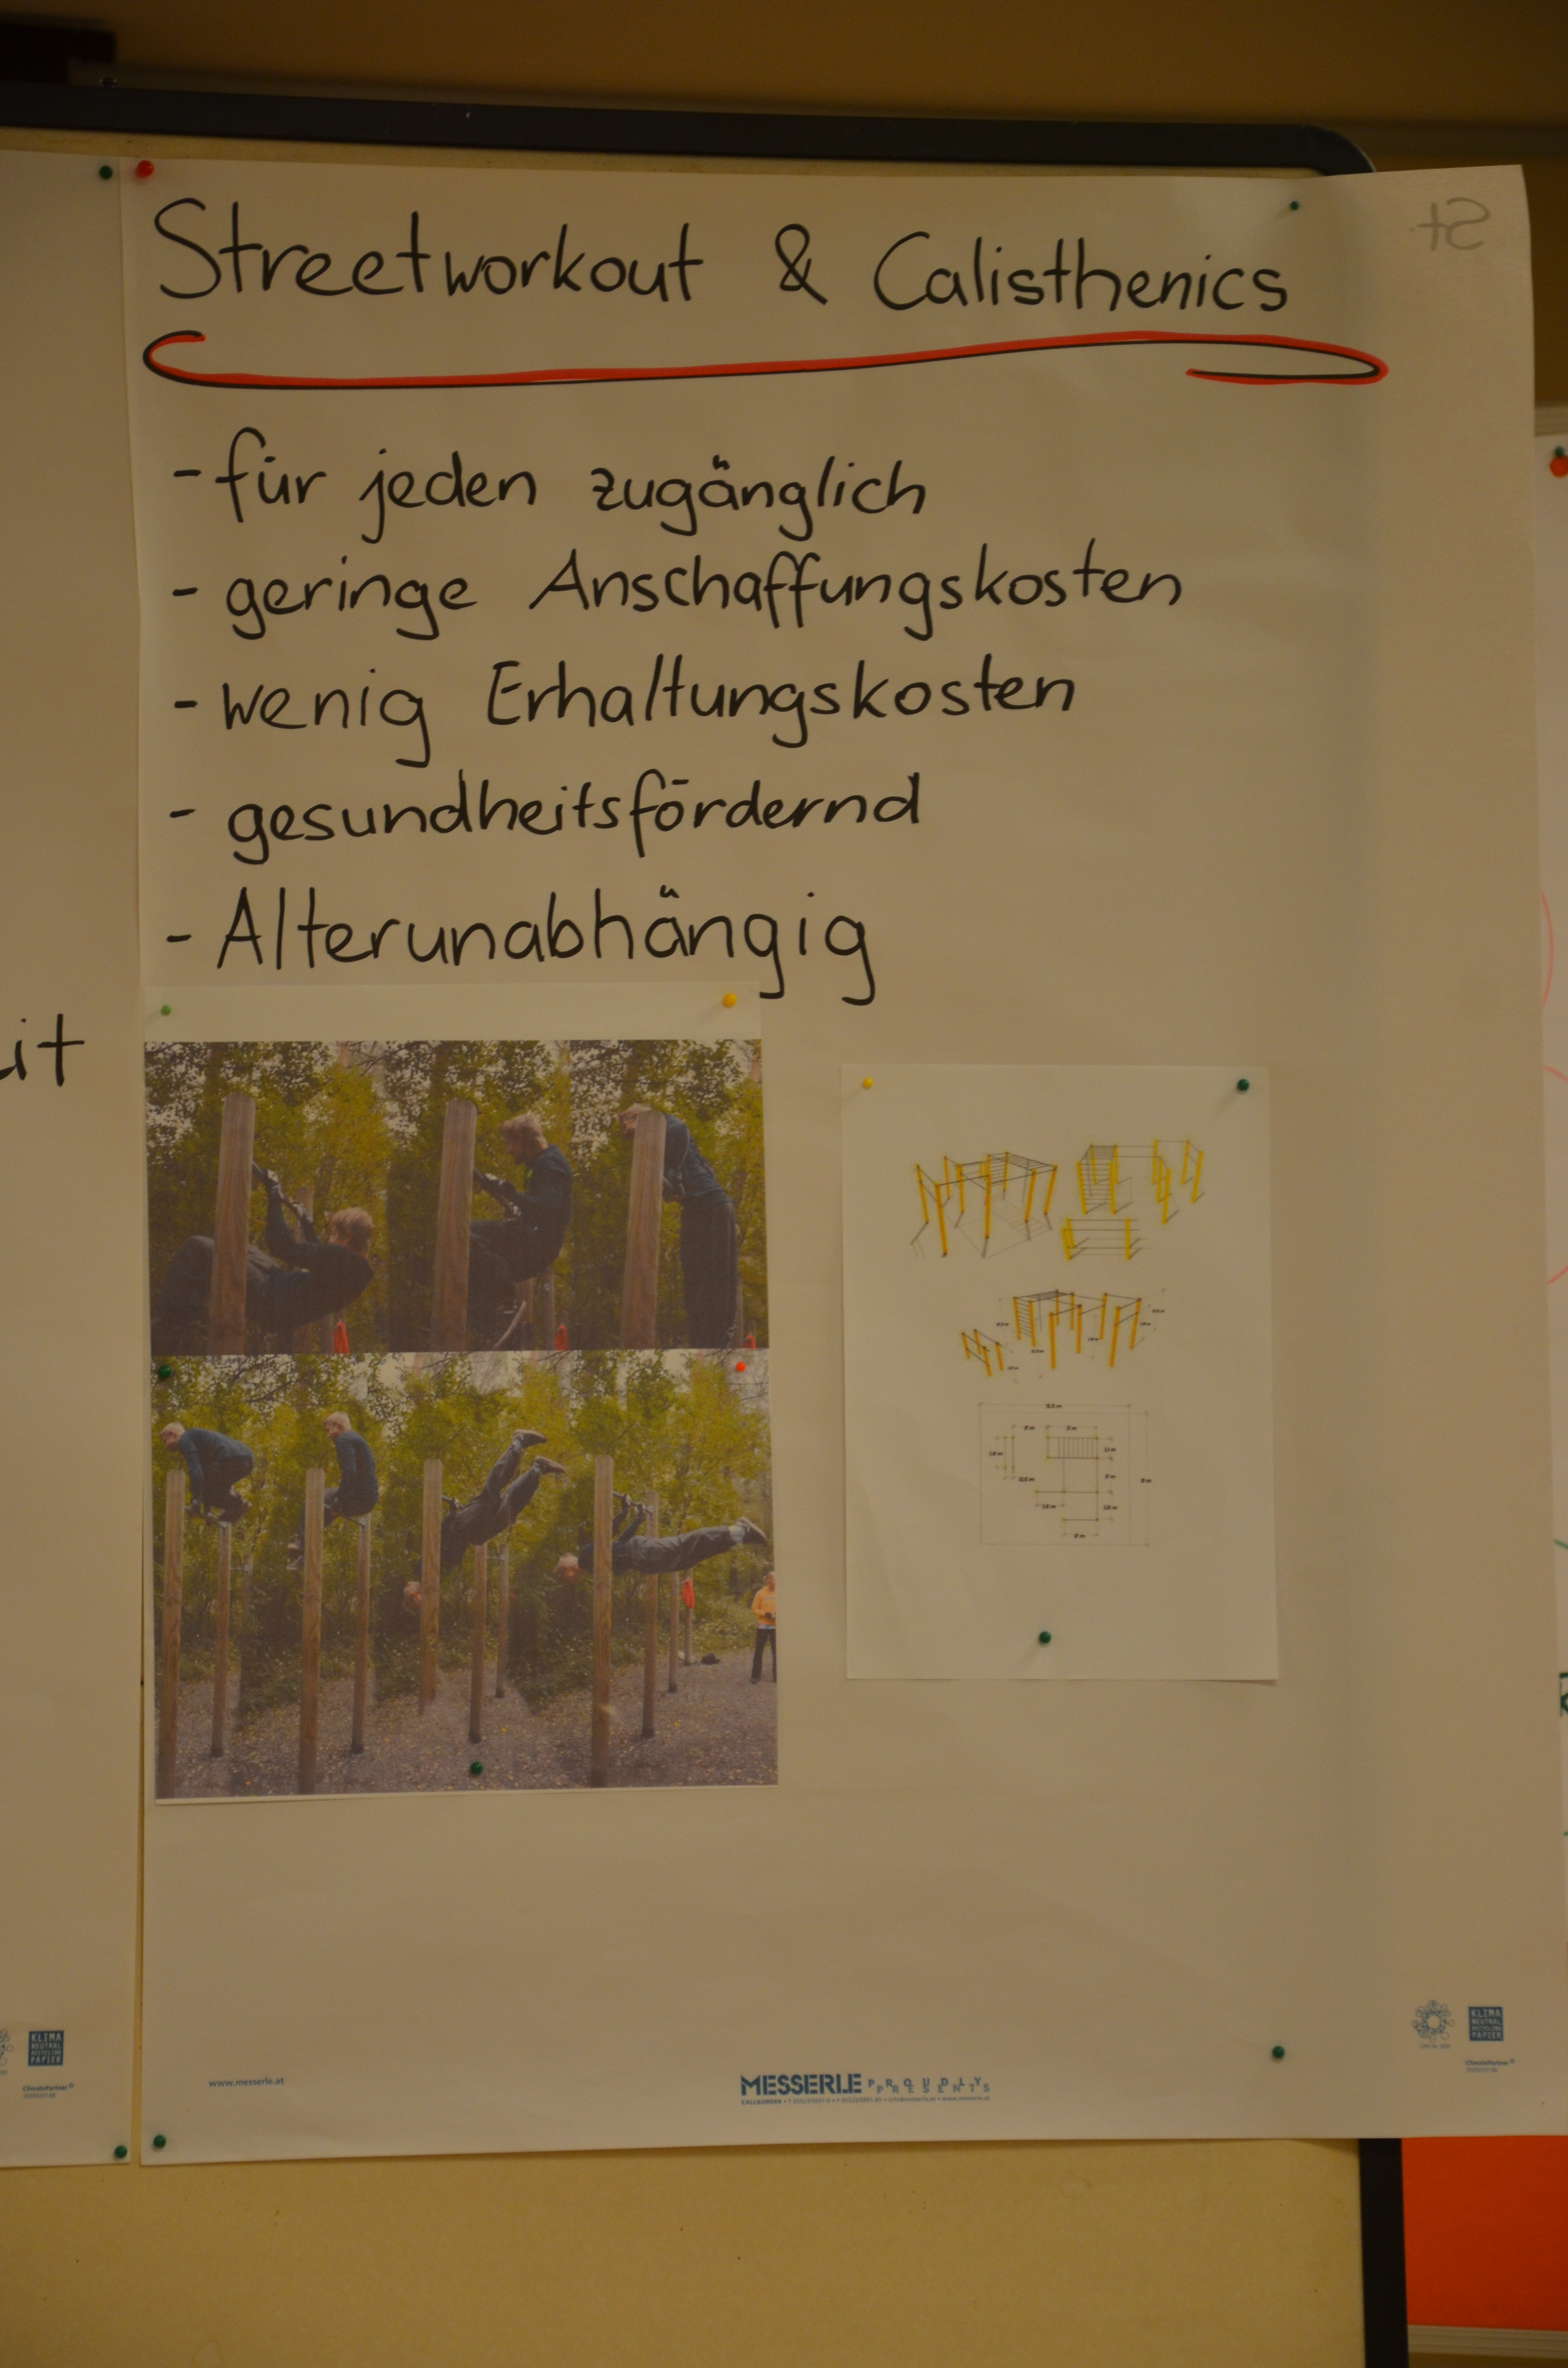 Streetworkout & Calisthenics
- für jeden zugänglich
- geringe Anschaffungskosten
- wenig Erhaltungskosten
- gesundheitsfördernd
- Alterunabhängig
it
www.messerle.at
MESSERLE PROUDLY PRESENTS
KLIMA
NEUTRAL
RECYCLING
PAPIER
ClimatePartner
KLIMA
NEUTRAL
RECYCLING
PAPIER
ClimatePartner